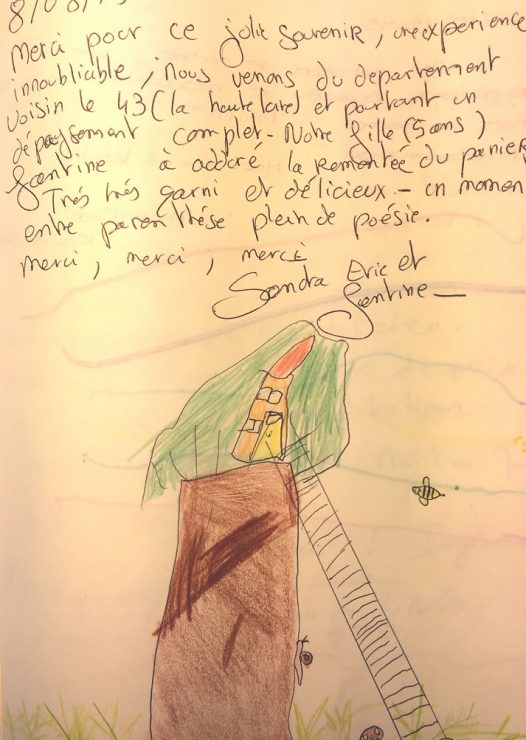 8/08/
Merci pour ce jolie souvenir, une experience
innoubliable, nous venons du departement
voisin le 43 (la haute loire) et pourtant un
dépaysement complet - Notre fille (5 ans)
Santine à adoré la Remontée du panier
Très très garni et délicieux - un momen
entre parenthèse plein de poésie.
merci, merci, merci
Sandra Eric et
Santine -